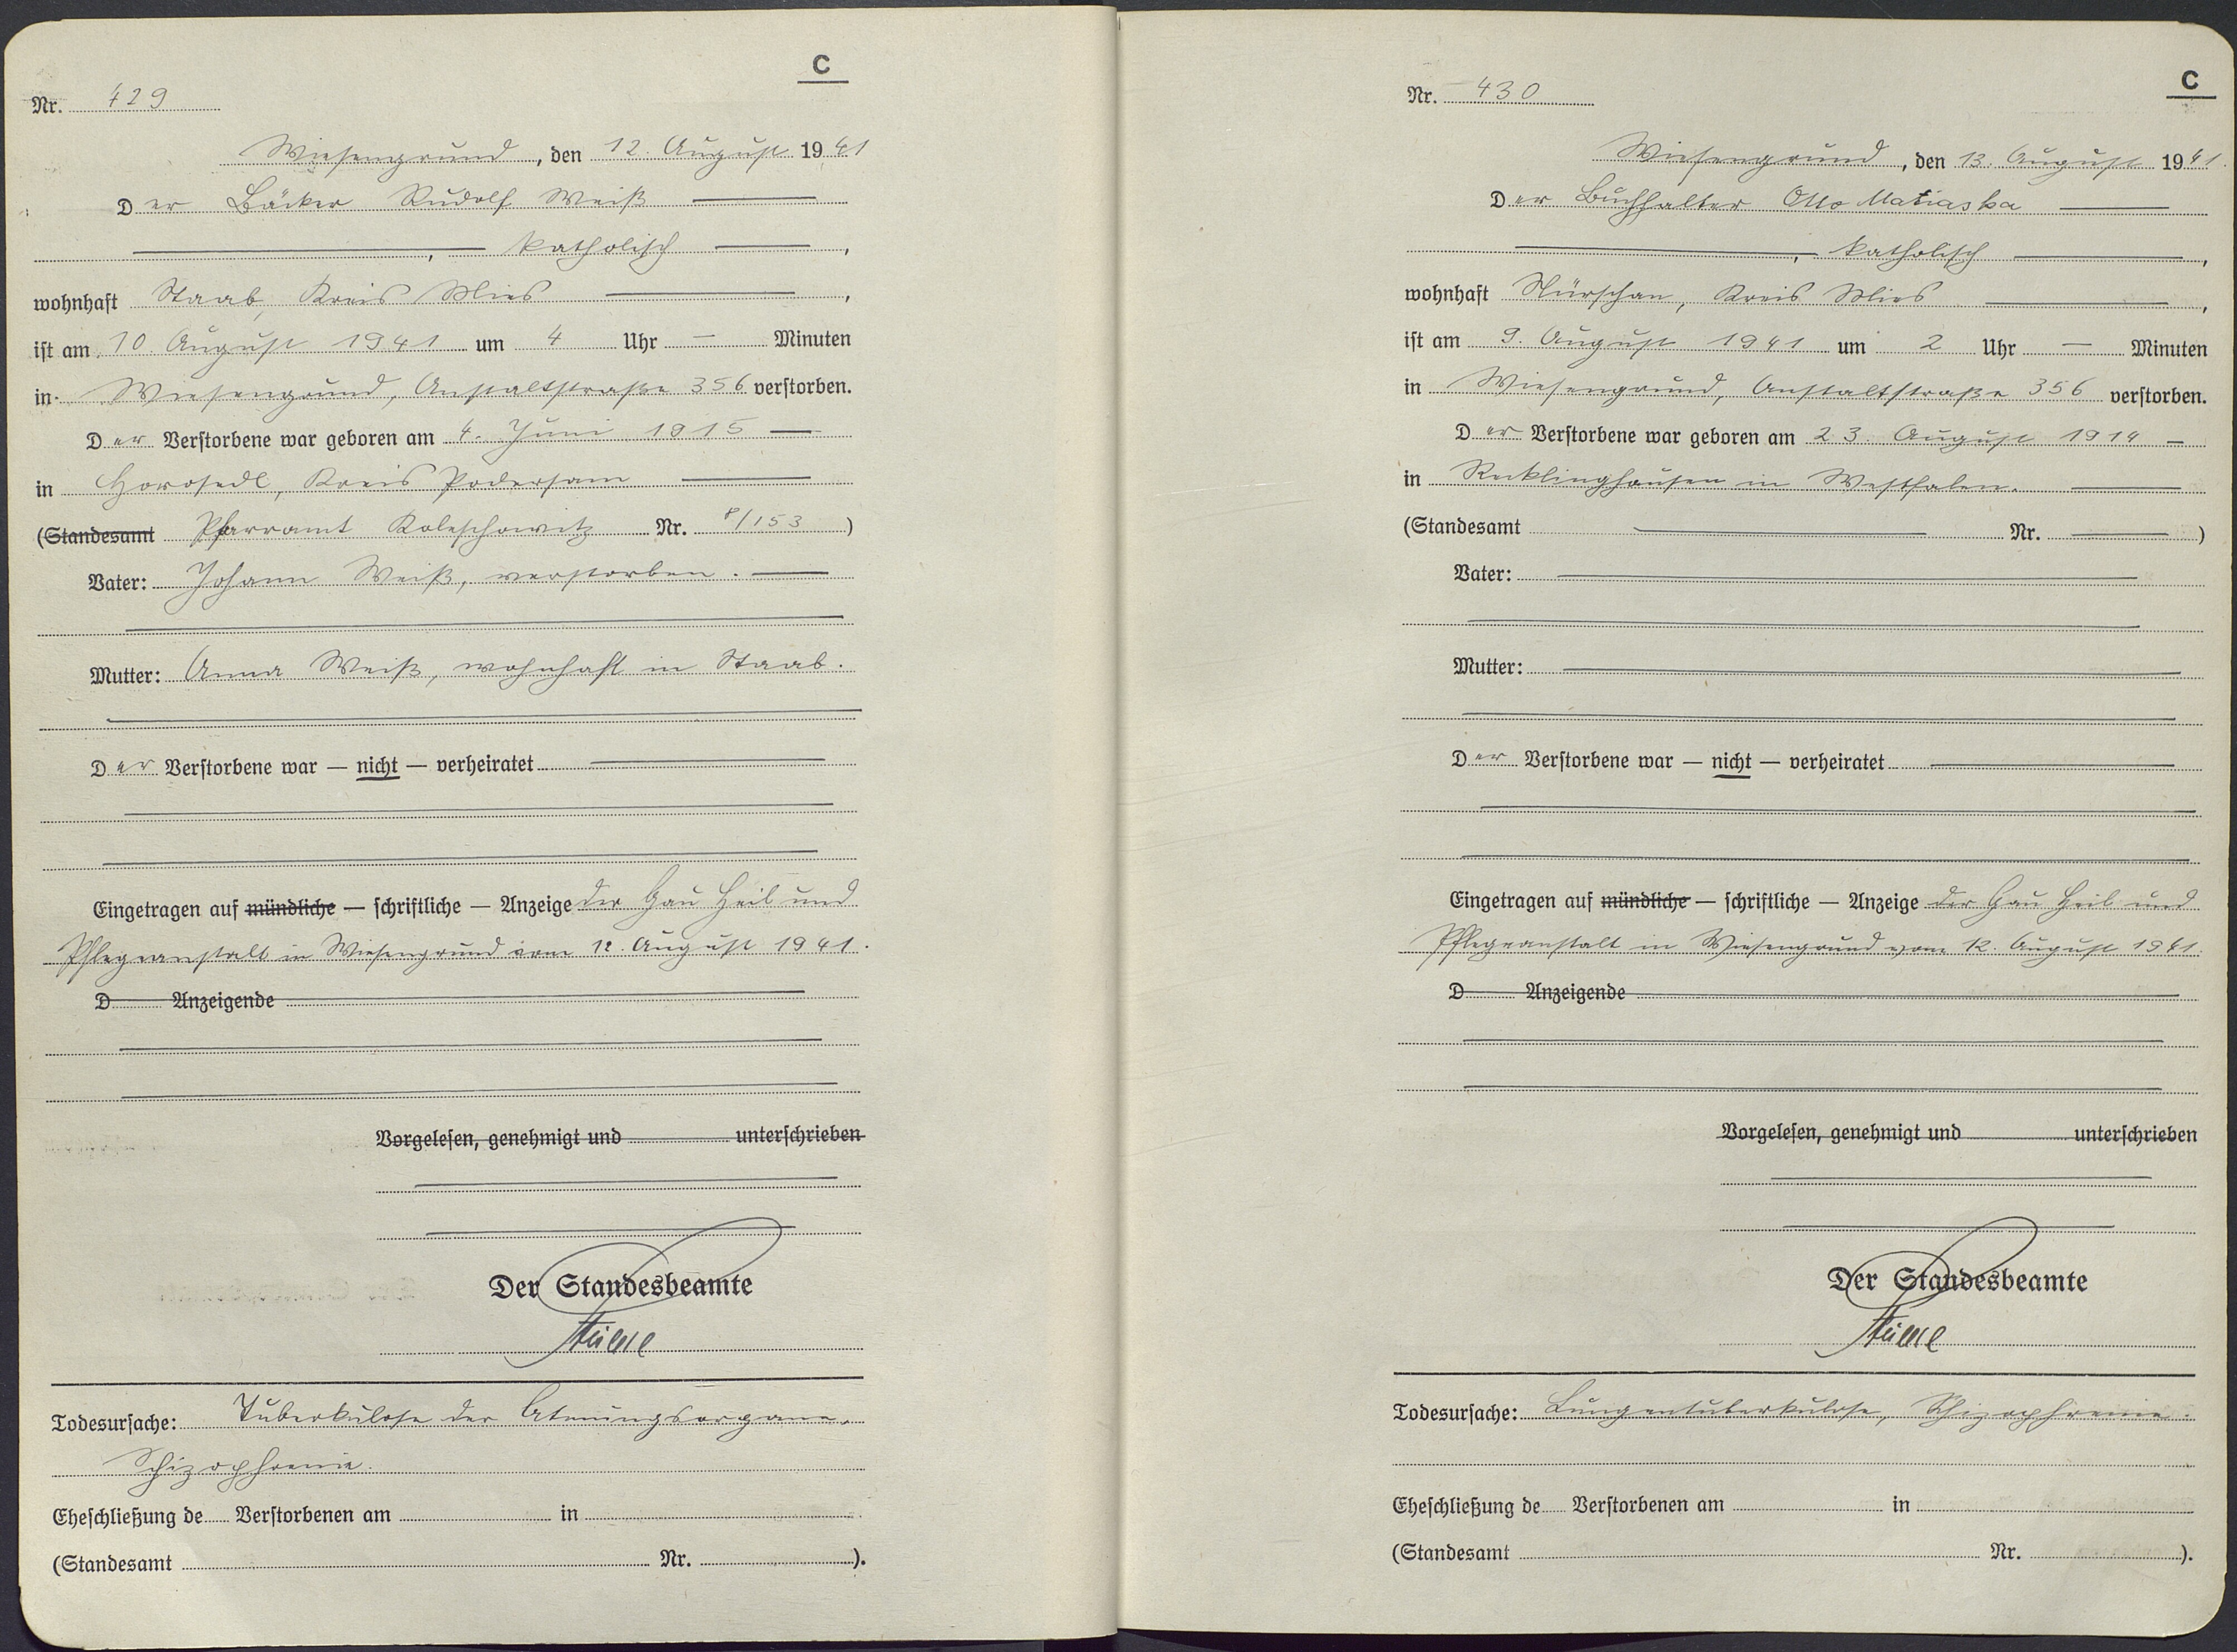 C
Nr. 429
Wiesengrund, den 12. August 1941
Der Bäcker Rudolf Weiß
, katholisch,
wohnhaft Staab, Kreis Mies,
ist am 10. August 1941 um 4 Uhr — Minuten
in Wiesengrund, Anstaltstraße 356 verstorben.
Der Verstorbene war geboren am 4. Juni 1915 —
in Horosedl, Kreis Podersam
(Standesamt Pfarramt Koleschowitz Nr. 8/153)
Vater: Johann Weiß, verstorben.
Mutter: Anna Weiß, wohnhaft in Staab.
Der Verstorbene war — nicht — verheiratet
Eingetragen auf mündliche — schriftliche — Anzeige der Gau Heil und
Pflegeanstalt in Wiesengrund vom 12. August 1941.
D Anzeigende
Vorgelesen, genehmigt und unterschrieben
Der Standesbeamte
Todesursache: Tuberkulose der Atmungsorgane,
Schizophrenie.
Eheschließung de Verstorbenen am in
(Standesamt Nr. ).
C
Nr. 430
Wiesengrund, den 13. August 1941.
Der Buchhalter Otto Matiaska
, katholisch,
wohnhaft Nürschan, Kreis Mies,
ist am 9. August 1941 um 2 Uhr — Minuten
in Wiesengrund, Anstaltstraße 356 verstorben.
Der Verstorbene war geboren am 23. August 1914 —
in Recklinghausen in Westfalen.
(Standesamt Nr. )
Vater:
Mutter:
Der Verstorbene war — nicht — verheiratet
Eingetragen auf mündliche — schriftliche — Anzeige der Gau Heil und
Pflegeanstalt in Wiesengrund vom 12. August 1941.
D Anzeigende
Vorgelesen, genehmigt und unterschrieben
Der Standesbeamte
Todesursache: Lungentuberkulose, Schizophrenie.
Eheschließung de Verstorbenen am in
(Standesamt Nr. ).